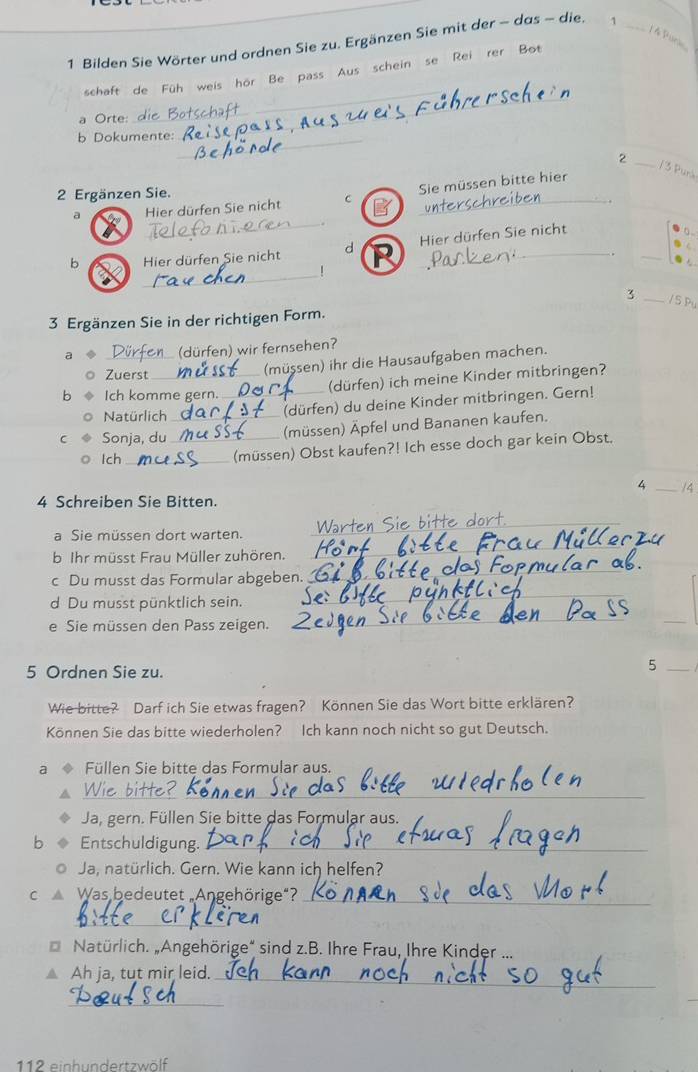 1 Bilden Sie Wörter und ordnen Sie zu. Ergänzen Sie mit der – das – die.
1 ___ /4 Punkte
schaft de Füh weis hör Be pass Aus schein se Rei rer Bot
a Orte: die Botschaft
b Dokumente: Reisepass, Ausweis Führerschein
Behörde
2 ___ /3 Punk
2 Ergänzen Sie.
a Hier dürfen Sie nicht
Telefonieren.
c Sie müssen bitte hier
unterschreiben.
b Hier dürfen Sie nicht
rauchen!
d Hier dürfen Sie nicht
Parken.
3 ___ /5 Pu
3 Ergänzen Sie in der richtigen Form.
a Dürfen (dürfen) wir fernsehen?
Zuerst müsst (müssen) ihr die Hausaufgaben machen.
b Ich komme gern. Darf (dürfen) ich meine Kinder mitbringen?
Natürlich darfst (dürfen) du deine Kinder mitbringen. Gern!
c Sonja, du musst (müssen) Äpfel und Bananen kaufen.
Ich muss (müssen) Obst kaufen?! Ich esse doch gar kein Obst.
4 ___ /4
4 Schreiben Sie Bitten.
a Sie müssen dort warten. Warten Sie bitte dort.
b Ihr müsst Frau Müller zuhören. Hört bitte Frau Müller zu
c Du musst das Formular abgeben. Gib bitte das Formular ab.
d Du musst pünktlich sein. Sei bitte pünktlich
e Sie müssen den Pass zeigen. Zeigen Sie bitte den Pass
5 ___ /
5 Ordnen Sie zu.
Wie bitte? Darf ich Sie etwas fragen? Können Sie das Wort bitte erklären?
Können Sie das bitte wiederholen? Ich kann noch nicht so gut Deutsch.
a Füllen Sie bitte das Formular aus.
Wie bitte? Können Sie das bitte wiedrholen
Ja, gern. Füllen Sie bitte das Formular aus.
b Entschuldigung. Darf ich Sie etwas fragen
Ja, natürlich. Gern. Wie kann ich helfen?
c Was bedeutet „Angehörige“? Können sie das Wort
bitte erkleren
Natürlich. „Angehörige“ sind z.B. Ihre Frau, Ihre Kinder ...
Ah ja, tut mir leid. Ich kann noch nicht so gut
Deutsch
112 einhundertzwölf